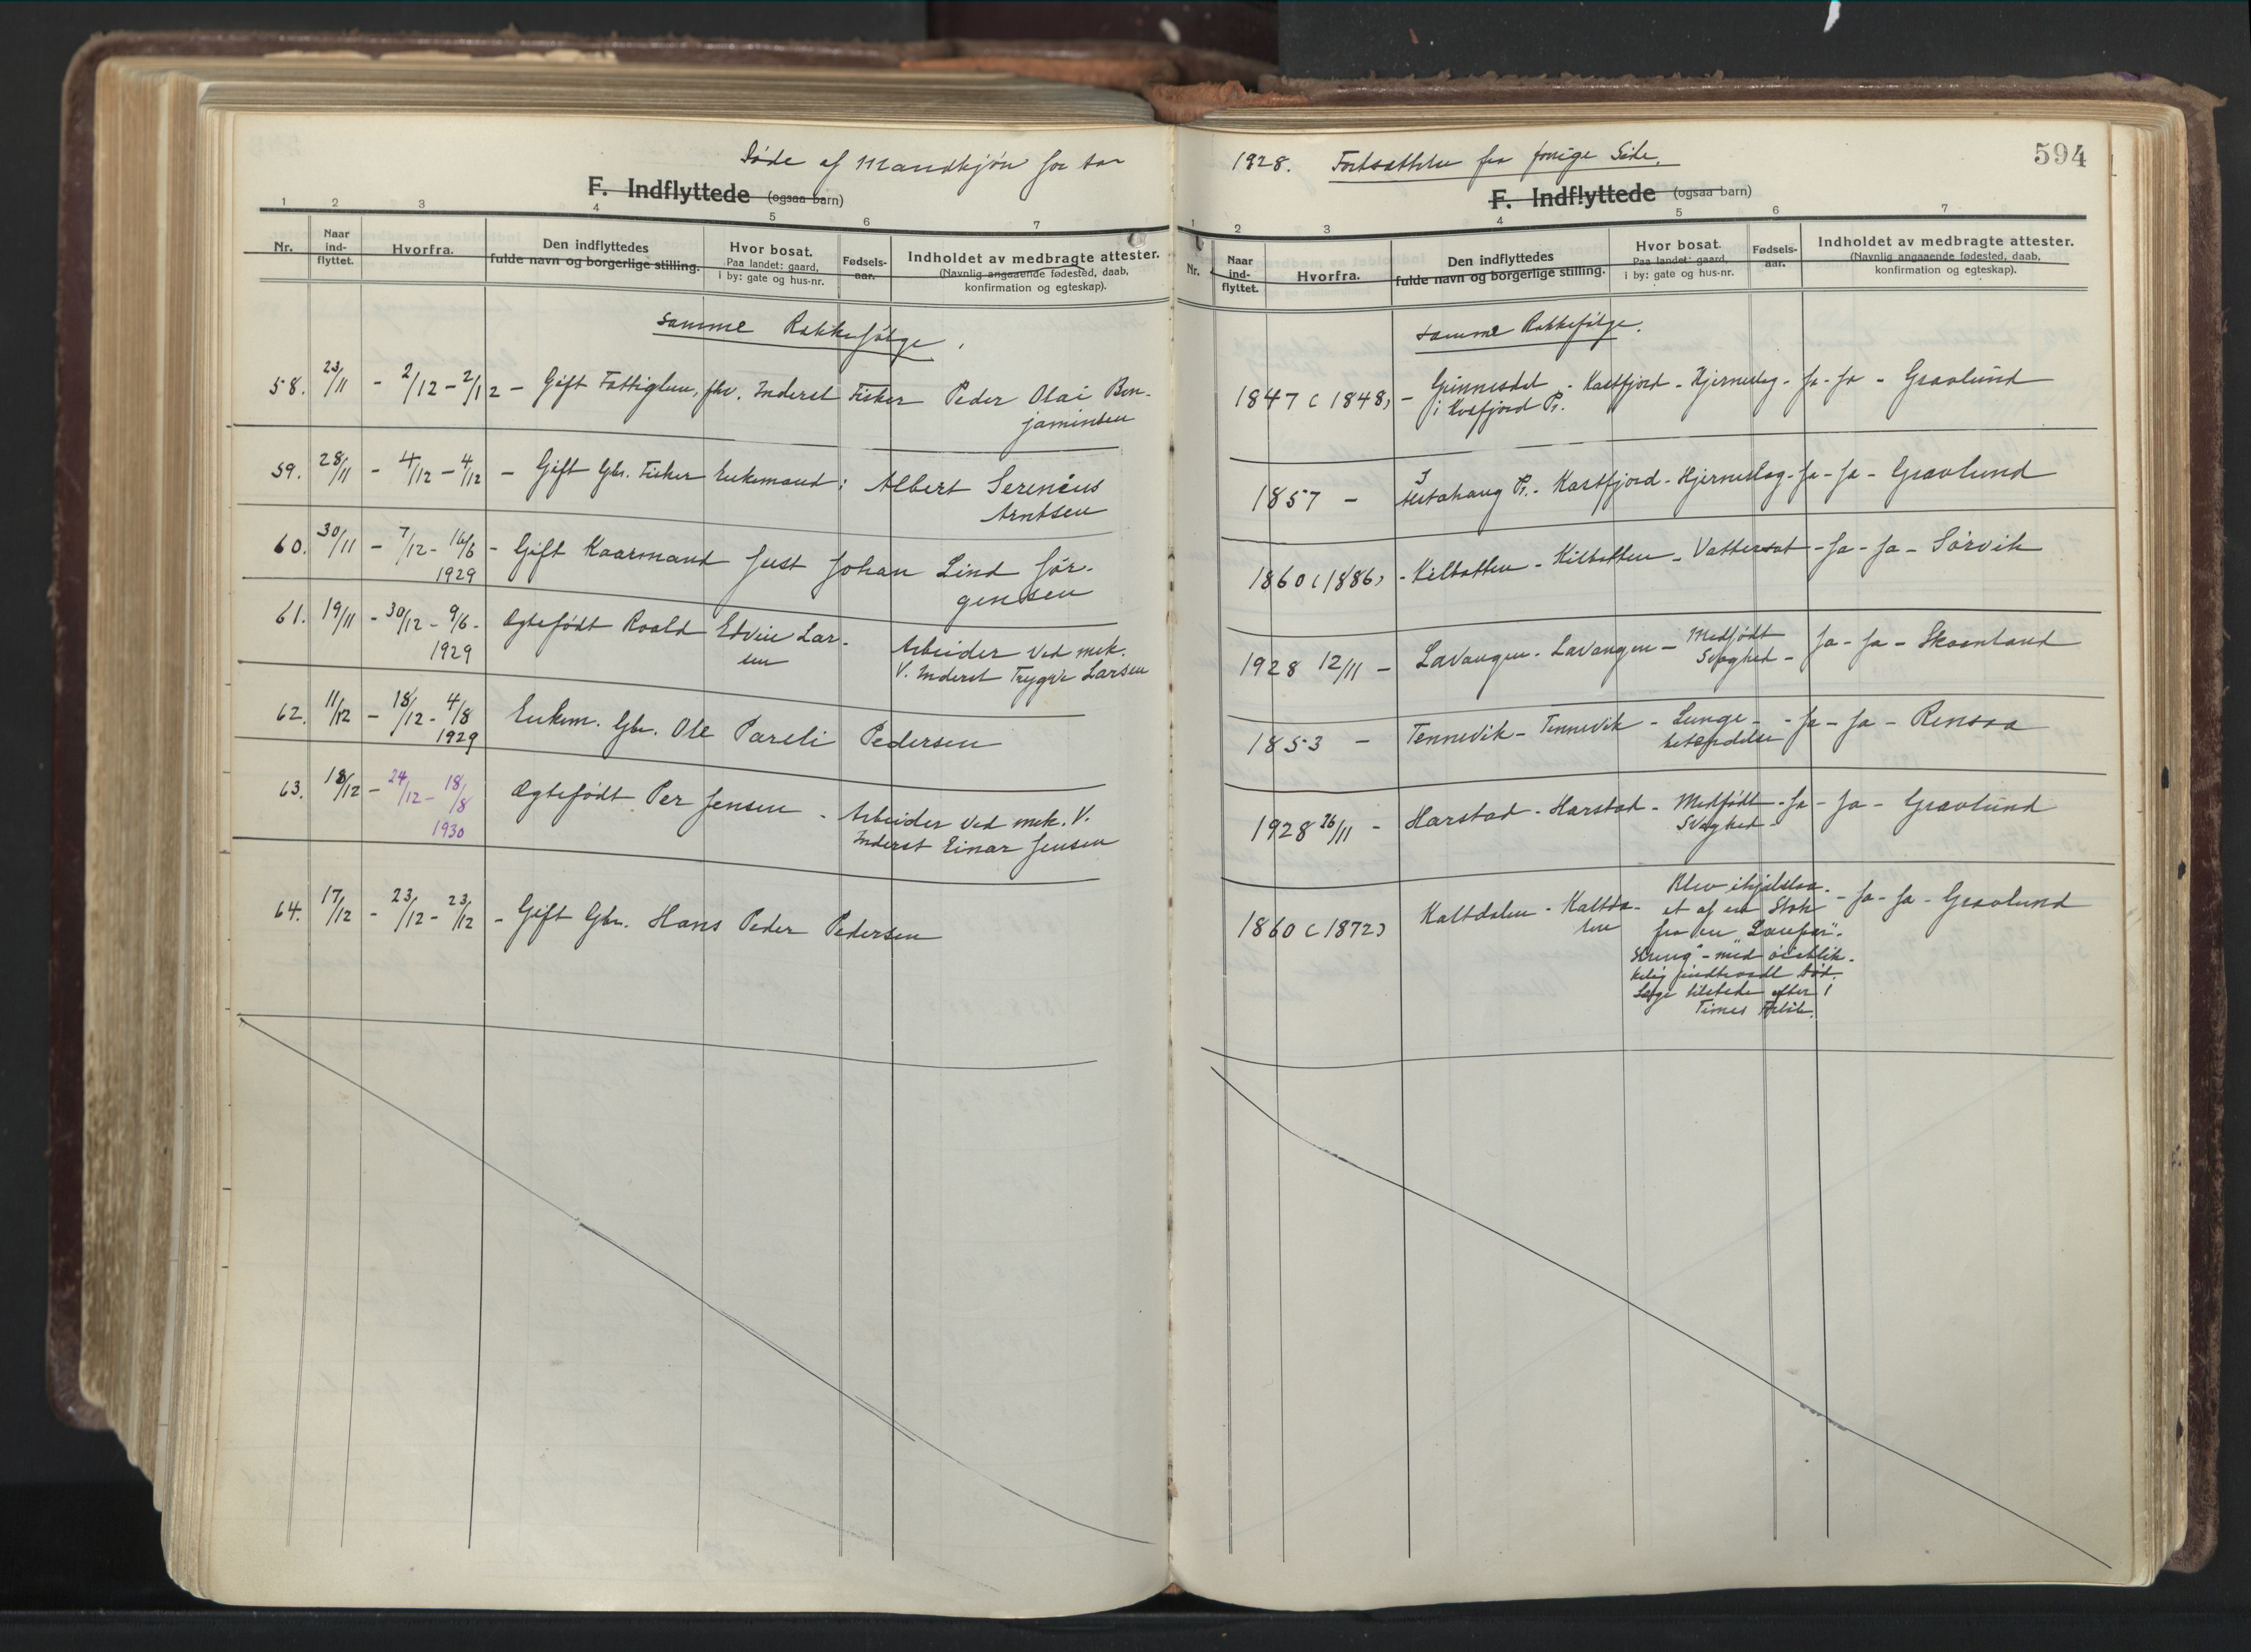 Døde af Mandkjøn for Aar
F. Indflyttede (ogsaa barn)
1 2 3 4 5 6 7
Nr.
Naar
ind-
flyttet.
Hvorfra.
Den indflyttedes
fulde navn og borgerlige stilling.
Hvor bosat.
Paa landet: gaard,
i by: gate og hus-nr.
Fødsels-
aar.
Indholdet av medbragte attester.
(Navnlig angaaende fødested, daab,
konfirmation og egteskap).
samme Rækkefølge.
58. 23/11 - 2/12 - 2/12 - Gift Fattiglem, fhv. Inderst Fisker Peder Olai Ben-
jaminsen
59. 28/11 - 4/12 - 4/12 - Gift Gbr. Fisker Enkemand: Albert Serenius
Arntsen
60. 30/11 - 7/12 - 16/6 - Gift Kaarmand Just Johan Lind Jør-
1929
gensen
61. 19/11 - 30/12 - 9/6 - Ægtefødt Roald Edvin Lar-
1929
sen
Arbeider ved mek.
V. Inderst Trygve Larsen
62. 11/12 - 18/12 - 4/8 Enkem. Gbr. Ole Pareli Pedersen
1929
63. 18/12 - 24/12 - 18/8 Ægtefødt Per Jensen - Arbeider ved mek. V.
1930
Inderst Einar Jensen
64. 17/12 - 23/12 - 23/12 - Gift Gbr. Hans Peder Pedersen
594
1928. Fortsættelse fra forrige Side.
F. Indflyttede (ogsaa barn)
1 2 3 4 5 6 7
Nr.
Naar
ind-
flyttet.
Hvorfra.
Den indflyttedes
fulde navn og borgerlige stilling.
Hvor bosat.
Paa landet: gaard,
i by: gate og hus-nr.
Fødsels-
aar.
Indholdet av medbragte attester.
(Navnlig angaaende fødested, daab,
konfirmation og egteskap).
samme Rækkefølge.
1847 (1848) - Grinnesdal - Kastfjord - Hjerneslag - Ja - Ja - Gravlund
i Kvæfjord Pr.
1857 - I
Alstahaug Pr. - Kastfjord - Hjerneslag - Ja - Ja - Gravlund
1860 (1886) - Kilbotten - Kilbotten - Vattersot - Ja - Ja - Sørvik
1928 12/11 - Lavangen - Lavangen - Medfødt
Svaghed - Ja - Ja - Skaanland
1853 - Tennevik - Tennevik - Lunge-
betændelse - Ja - Ja - Rensaa
1928 26/11 - Harstad - Harstad - Medfødt
Svaghed - Ja - Ja - Gravlund
1860 (1872) Kaltdalen - Kaltda-
len
Blev ihjelslaa-
et af en Stok - Ja - Ja - Gravlund
fra en "Løipe-
streng" - med øieblik-
kelig indtraadt Død.
Læge tilstede efter 1
Times Forløb.